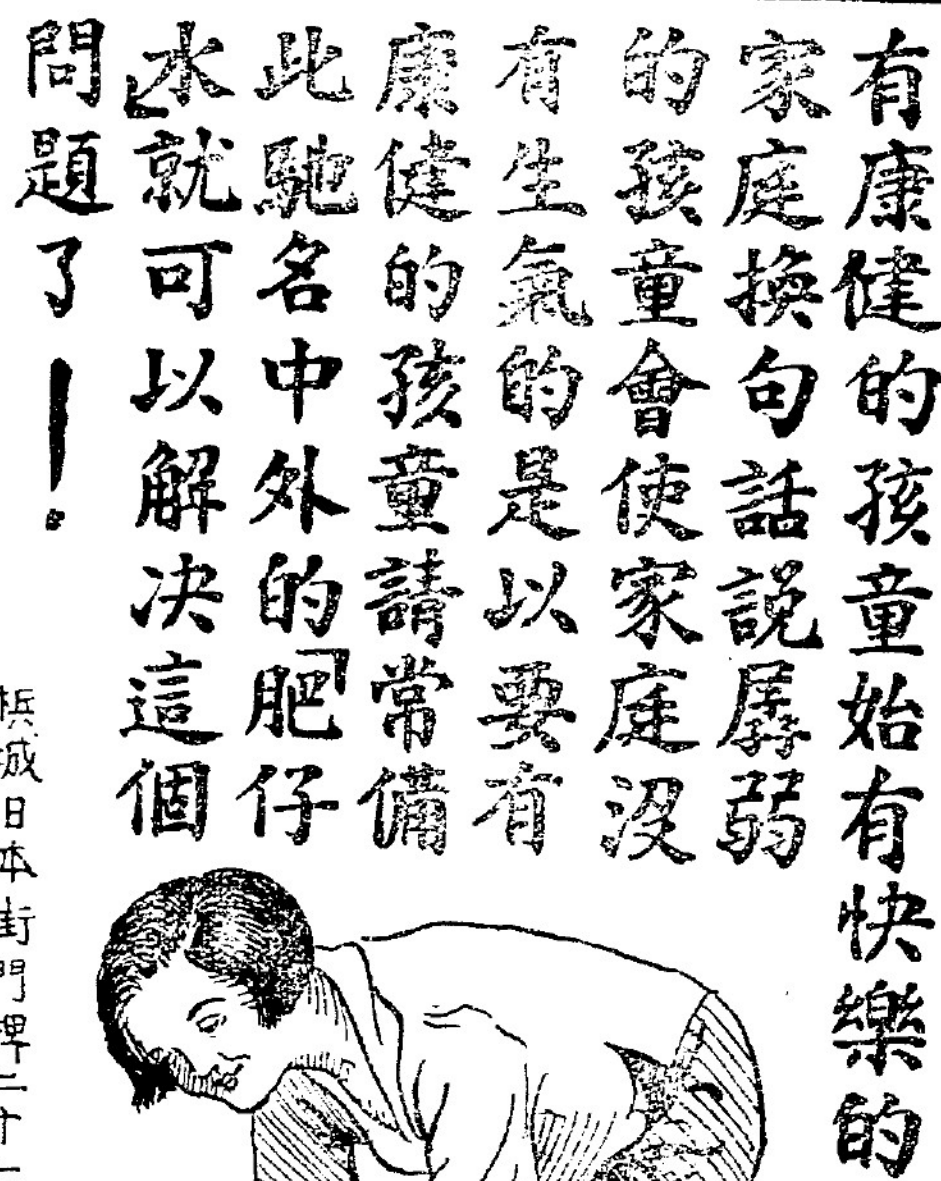 有康健的孩童始有快樂的
家庭換句話説孱弱
的孩童會使家庭沒
有生氣的是以要有
康健的孩童請常備
此馳名中外的「肥仔
水」就可以解决這個
問題了！
檳城日本街門牌二十一